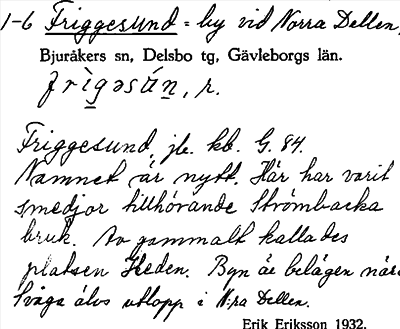 1-6 Friggesund = by vid Norra Dellen,
Bjuråkers sn, Delsbo tg, Gävleborgs län.
frìgəsún, r.
Friggesund, jb. kb. G. 84.
Namnet är nytt. Här har varit
smedjor tillhörande Strömbacka
bruk. Av gammalt kallades
platsen Heden. Byn är belägen nära
Svåga älvs utlopp i N:ra Dellen.
Erik Eriksson 1932.